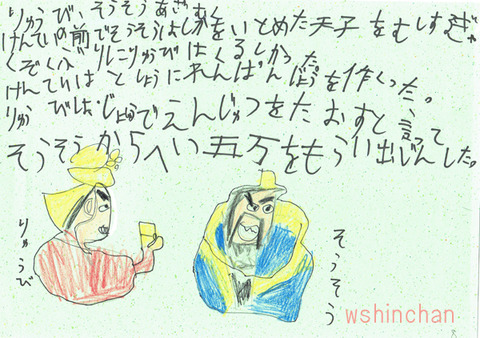 りゅうび、そうそうあざむく
けんていの前でそうそうはしかをいとめた天子をむしすぎ
くぞくぶりにりゅうびはくるしかった。
けんていはとしょうにれんぱんじょうを作くった。
りゅうびは、じょでえんじゅつをたおすと言って
そうそうからへい五万をもらい出じんしたっ
りゅうび
そうそう
wshinchan